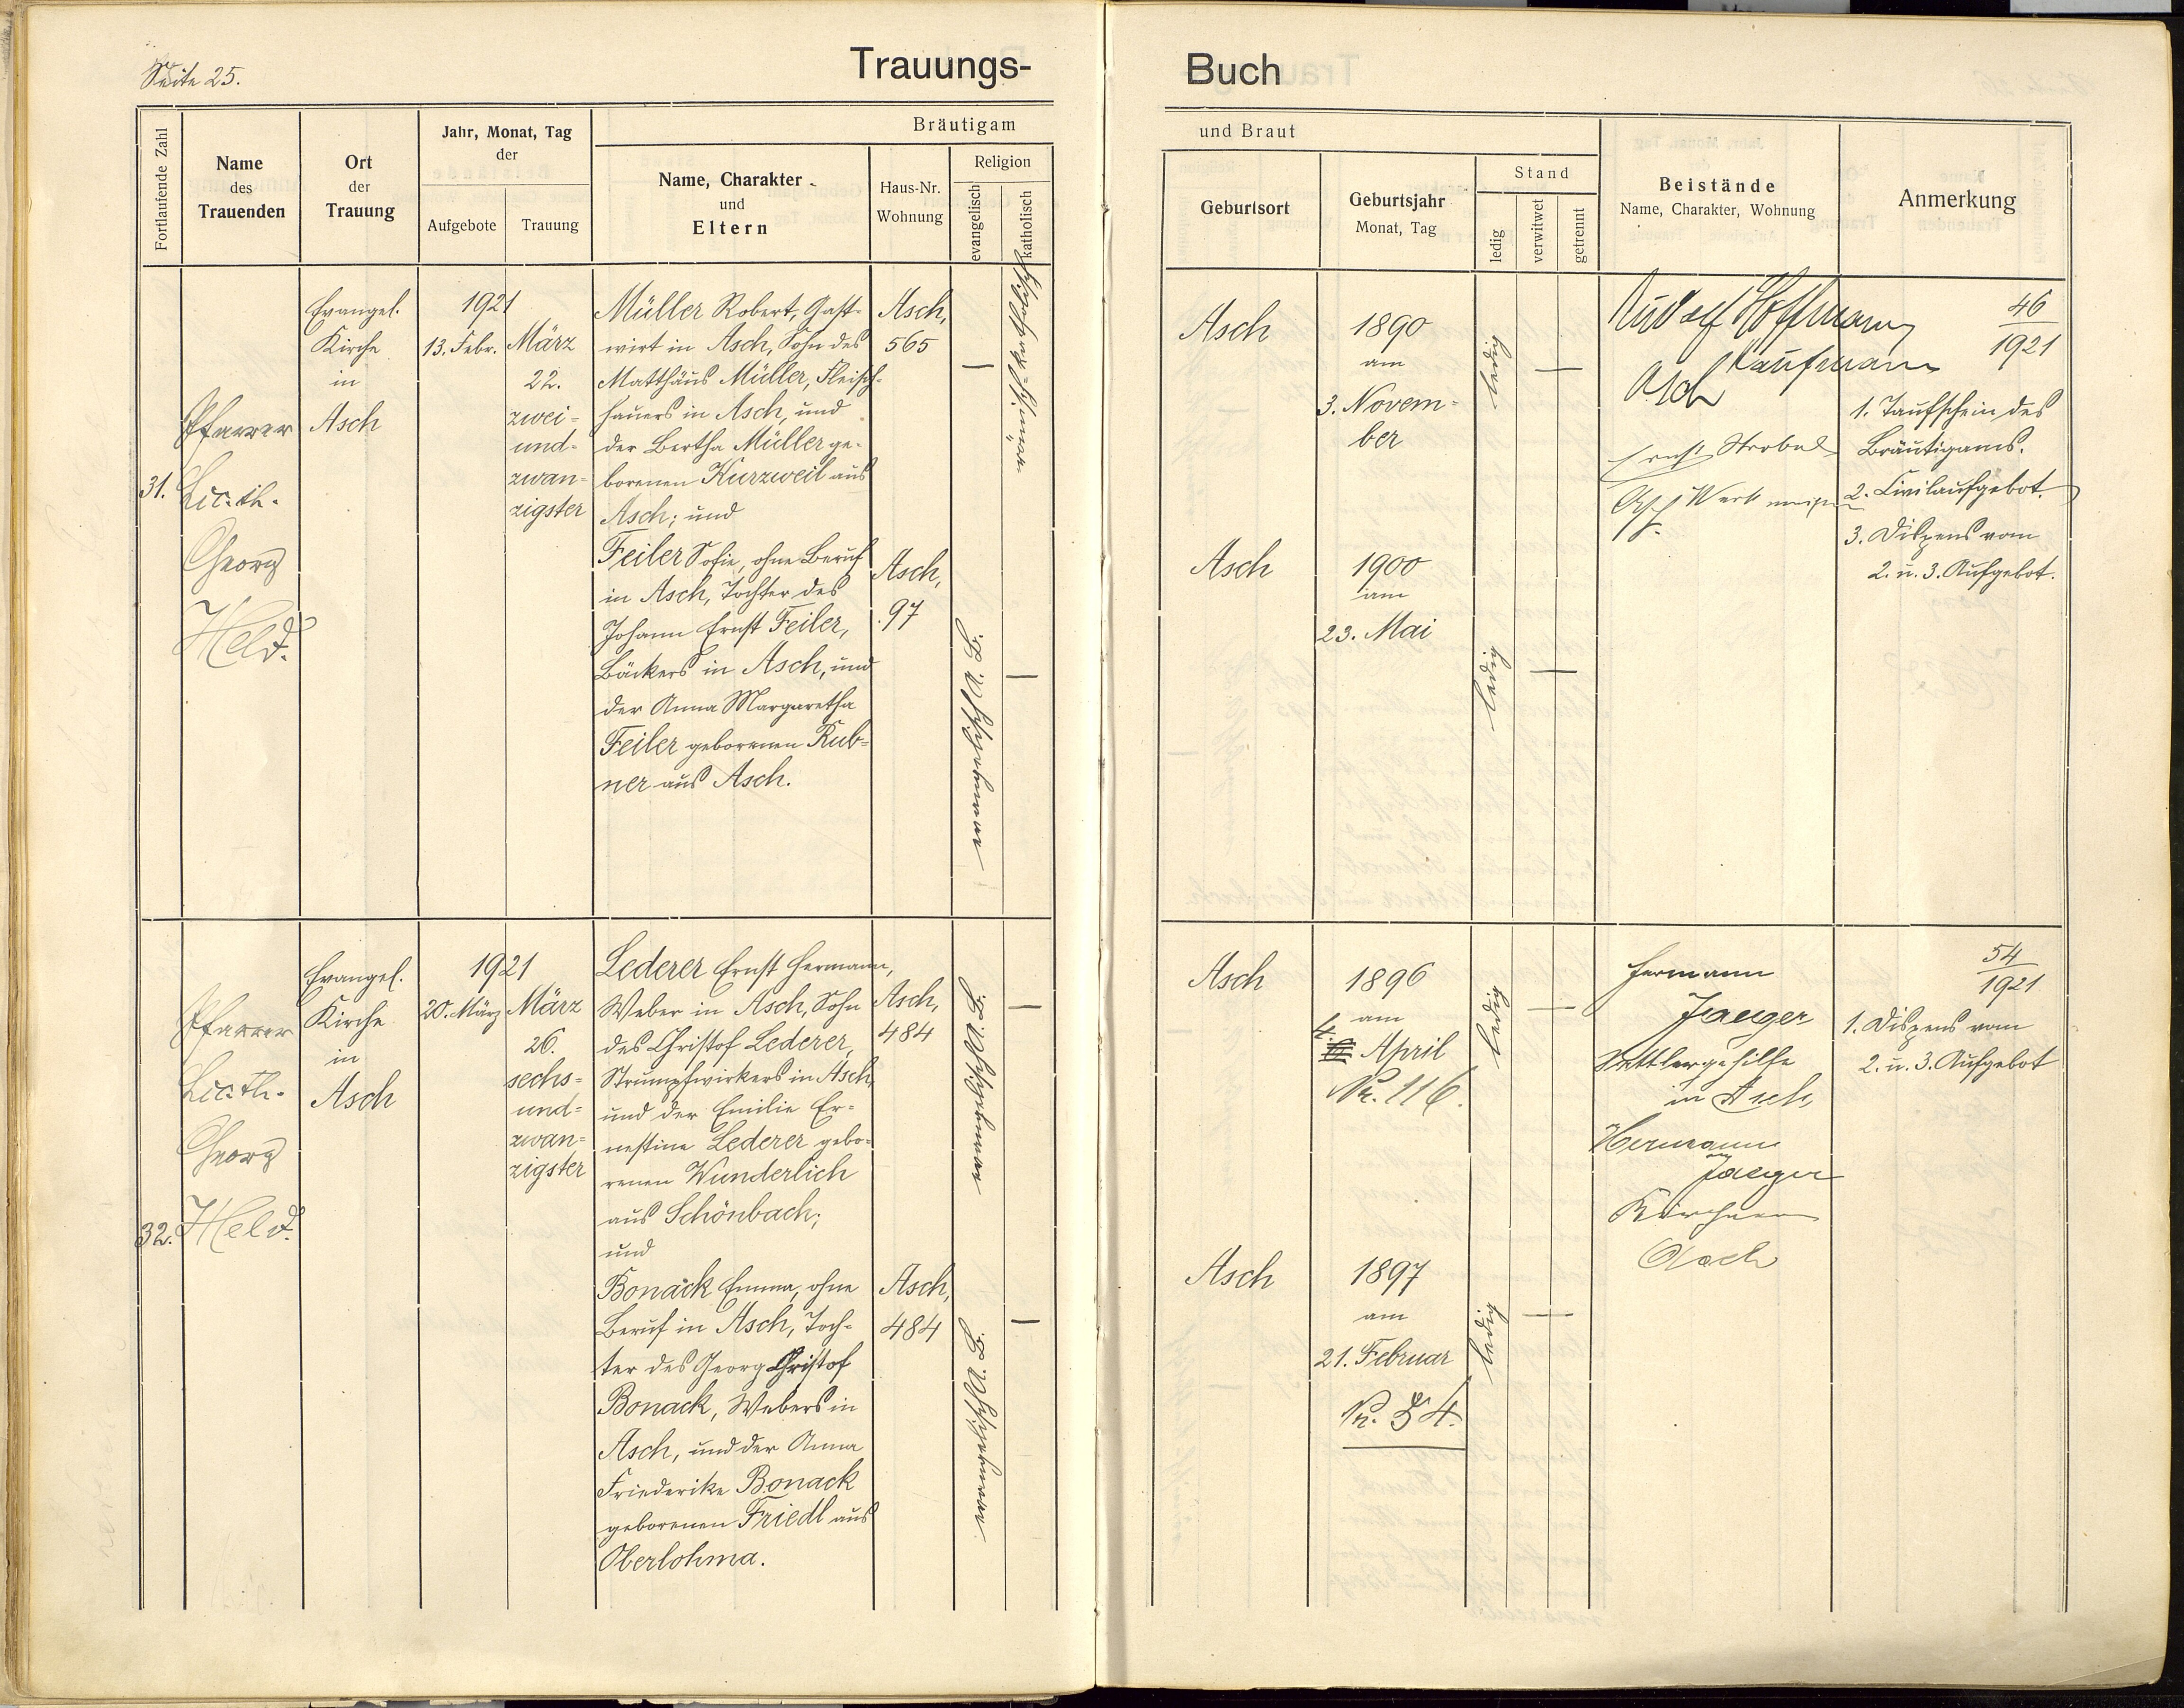 Seite 25.
Trauungs-
Buch
Fortlaufende Zahl
Name
des
Trauenden
Ort
der
Trauung
Jahr, Monat, Tag
der
Aufgebote
Trauung
Bräutigam
Name, Charakter
und
Eltern
Haus-Nr.
Wohnung
Religion
evangelisch
katholisch
und Braut
Geburtsort
Geburtsjahr
Monat, Tag
Stand
ledig
verwitwet
getrennt
Beistände
Name, Charakter, Wohnung
Anmerkung
31.
Pfarrer
Lic. th.
Georg
Held.
Evangel.
Kirche
in
Asch
1921
13. Febr.
März
22.
zwei-
und-
zwan-
zigster
Müller Robert, Gast-
wirt in Asch, Sohn des
Matthäus Müller, Fleisch-
hauers in Asch, und
der Bertha Müller ge-
borenen Kurzweil aus
Asch; und
Feiler Sofie, ohne Beruf
in Asch, Tochter des
Johann Ernst Feiler,
Bäckers in Asch, und
der Anna Margaretha
Feiler geborenen Rub-
ner aus Asch.
Asch,
565
Asch,
97
evangelisch A. B.
Asch
1890
am
3. Novem-
ber
ledig
Asch
1900
am
23. Mai
ledig
Rudolf Hoffmann
Kaufmann
Asch
Ernst Strobel
46
1921
1. Taufschein des
Bräutigams.
2. Civilaufgebot.
3. Dispens vom
2. u. 3. Aufgebot.
32.
Pfarrer
Lic. th.
Georg
Held.
Evangel.
Kirche
in
Asch
1921
20. März
März
26.
sechs-
und-
zwan-
zigster
Lederer Ernst Hermann,
Weber in Asch, Sohn
des Christof Lederer,
Strumpfwirkers in Asch,
und der Emilie Er-
nestine Lederer gebo-
renen Wunderlich
aus Schönbach;
und
Bonack Emma, ohne
Beruf in Asch, Toch-
ter des Georg Christof
Bonack, Webers in
Asch, und der Anna
Friederike Bonack
geborenen Friedl aus
Oberlohma.
Asch,
484
Asch,
484
evangelisch A. B.
evangelisch A. B.
Asch
1896
am
4. April
Nr. 116.
ledig
Asch
1897
am
21. Februar
Nr. 54.
ledig
Hermann
Jaeger
Sattlergehilfe
in Asch
Hermann
Jaeger
Asch
54
1921
1. Dispens vom
2. u. 3. Aufgebot